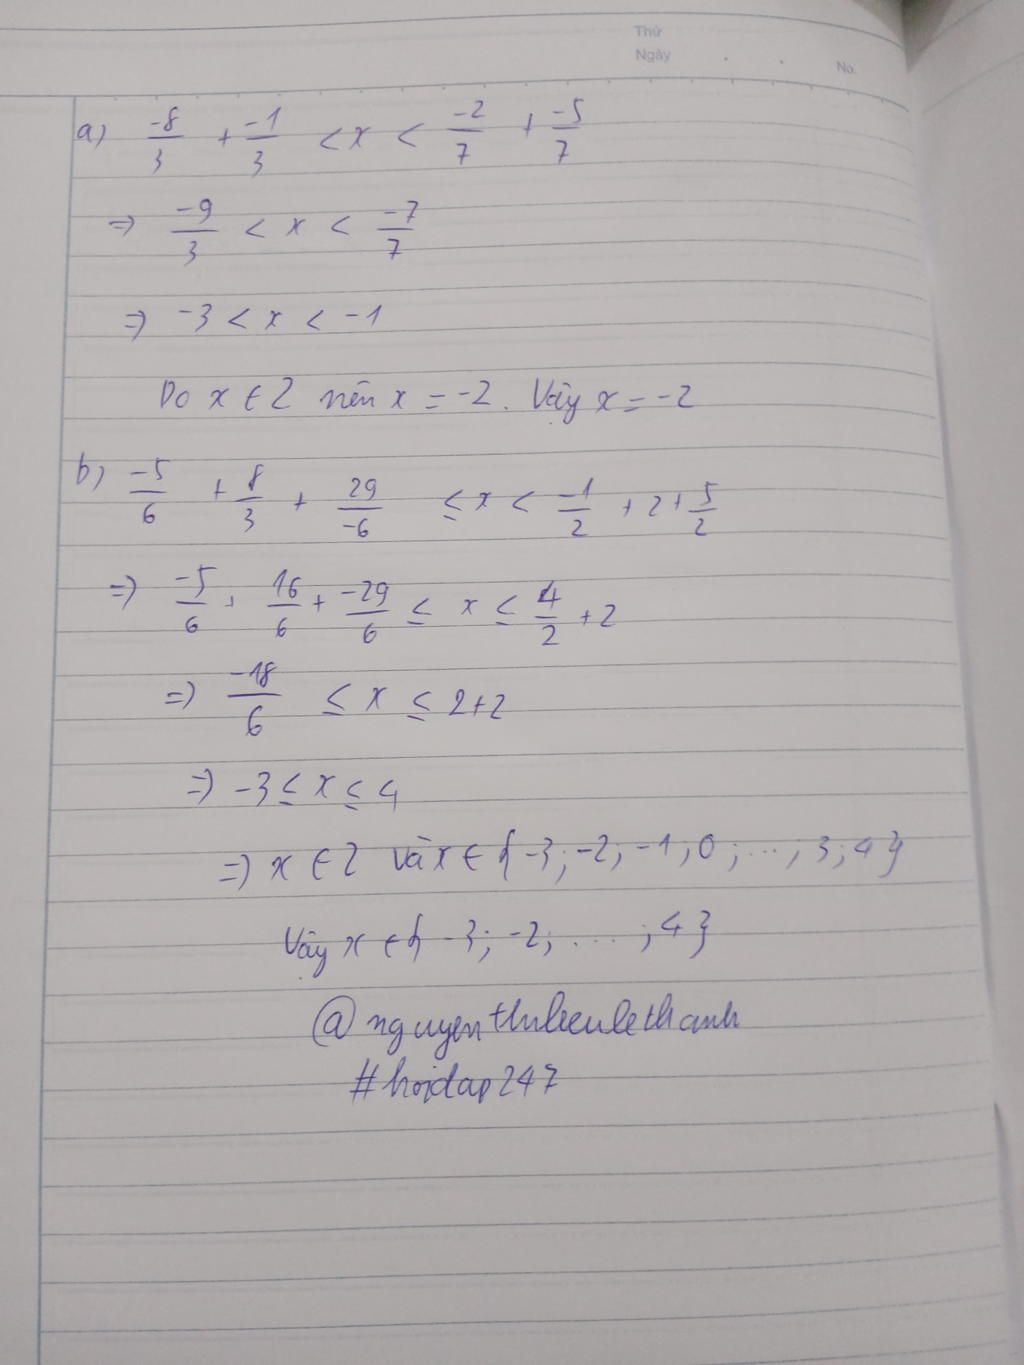 Thứ
Ngày . . No.
a) -8/3 + -1/3 < x < -2/7 + -5/7
=> -9/3 < x < -7/7
=> -3 < x < -1
Do x ∈ Z nên x = -2. Vậy x = -2
b) -5/6 + 8/3 + 29/-6 ≤ x < -1/2 + 2 + 5/2
=> -5/6 + 16/6 + -29/6 ≤ x ≤ 4/2 + 2
=> -18/6 ≤ x ≤ 2+2
=> -3 ≤ x ≤ 4
=> x ∈ Z và x ∈ { -3; -2; -1; 0; ...; 3; 4 }
Vậy x ∈ { -3; -2; ....; 4 }
#hoidap247